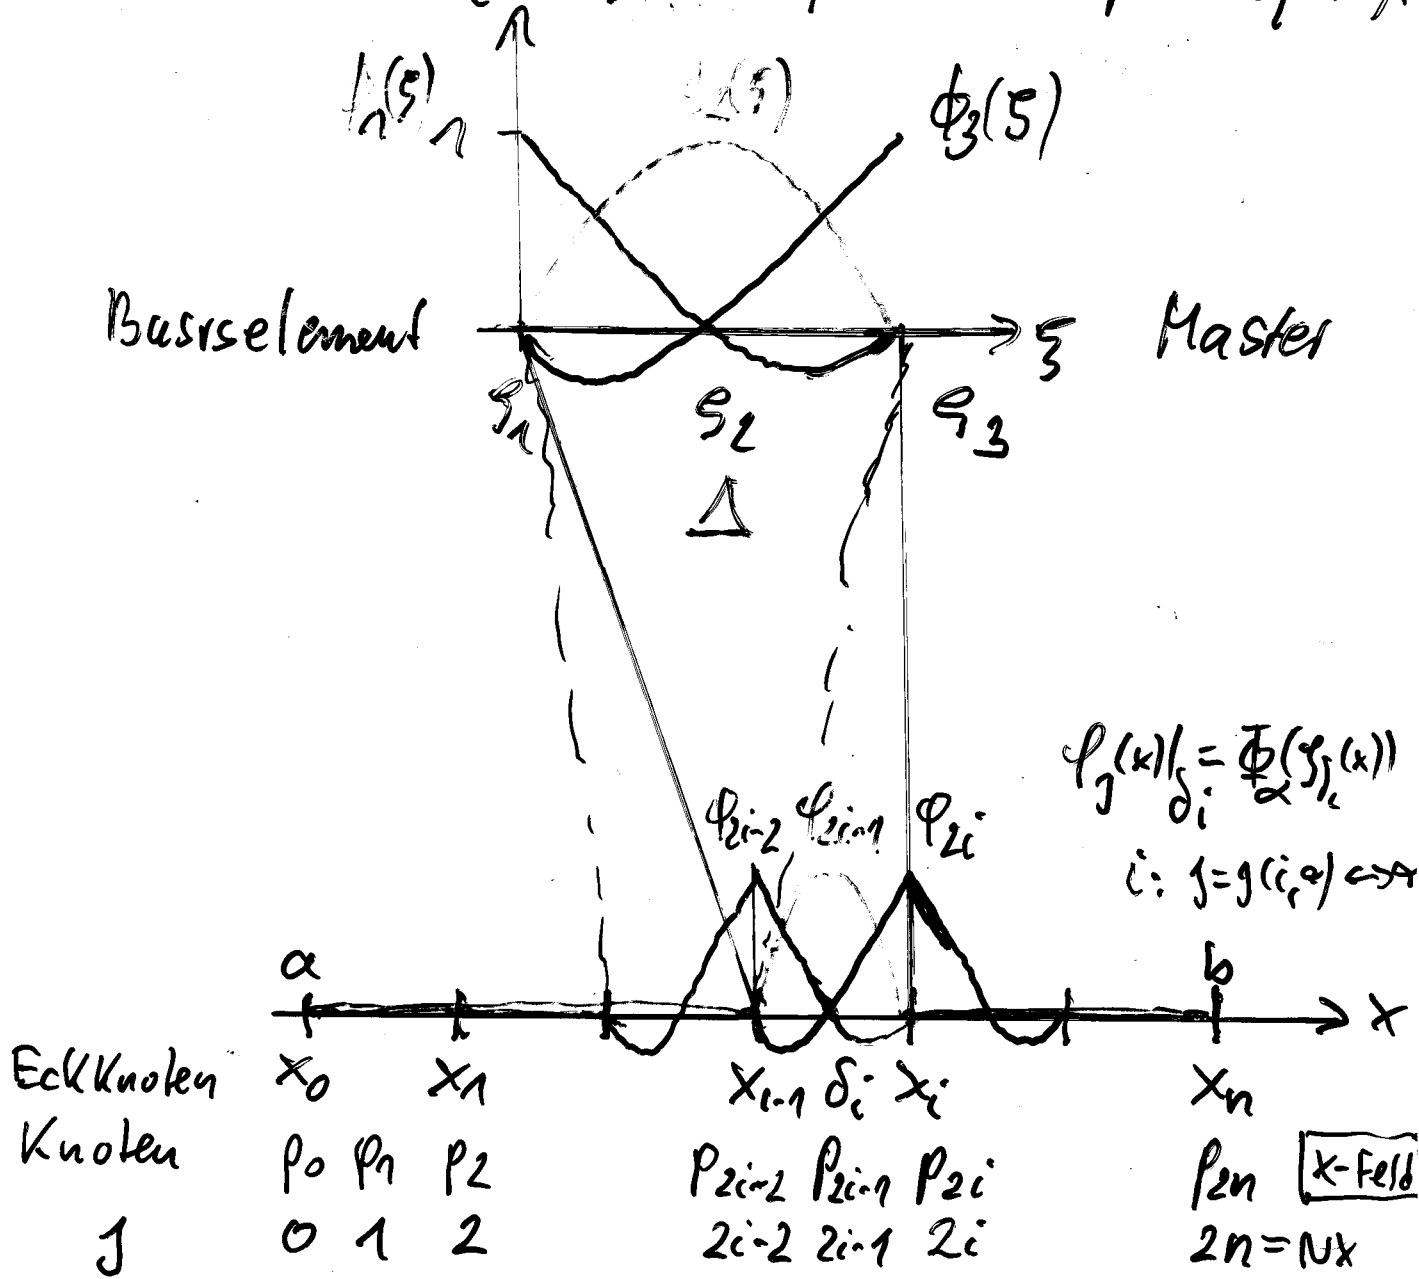 1
Φ₃(ξ)
Basiselement
ξ
Master
ξ₁ ξ₂ ξ₃
Δ
φ_j(x)|_δᵢ = Φ_α(ξ_δᵢ(x))
φ₂ᵢ₋₂ φ₂ᵢ₋₁ φ₂ᵢ
i: j=j(i,α) ↔
a b
x
Eckknoten x₀ x₁ xᵢ₋₁ δᵢ xᵢ xₙ
Knoten p₀ p₁ p₂ p₂ᵢ₋₂ p₂ᵢ₋₁ p₂ᵢ p₂ₙ x-Feld
j 0 1 2 2i-2 2i-1 2i 2n=Nx